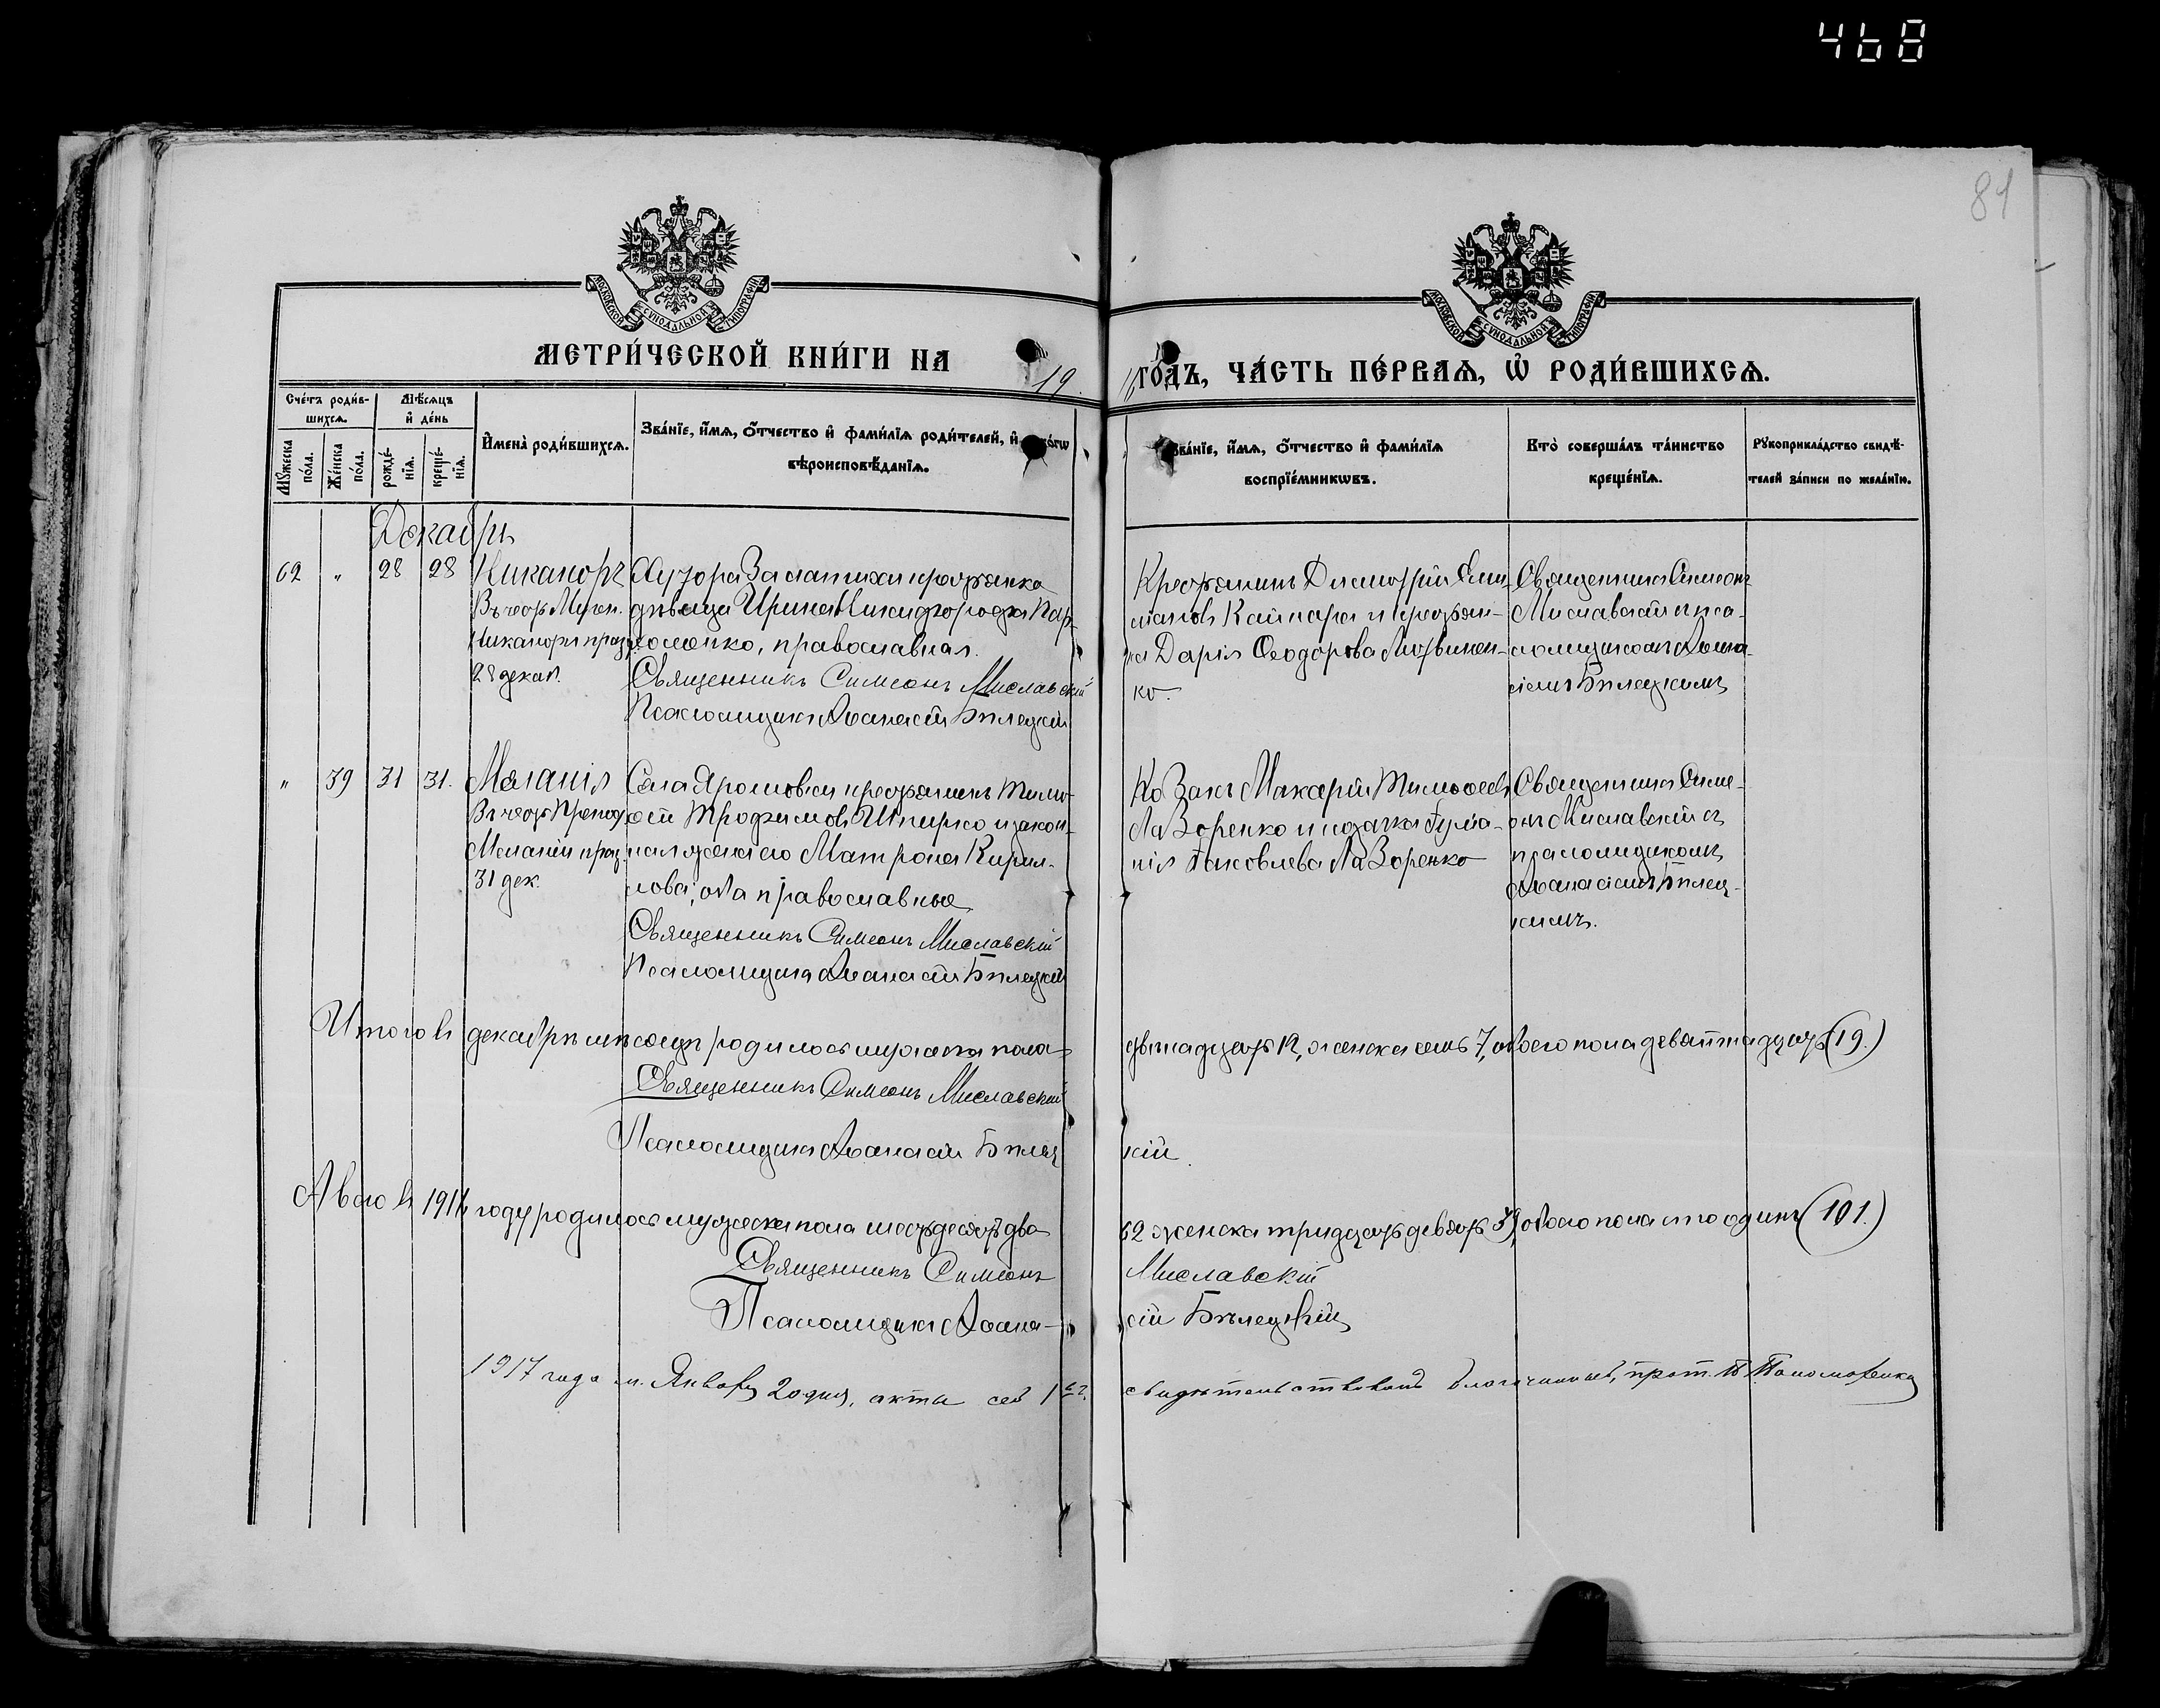 468
81
МОСКОВСКОЙ СѴНОДАЛЬНОЙ ТИПОГРАФІИ
МОСКОВСКОЙ СѴНОДАЛЬНОЙ ТИПОГРАФІИ
МЕТРИ́ЧЕСКОЙ КНИ́ГИ НА 19
16 ГОДЪ, ЧА́СТЬ ПЕ́РВАѦ, Ѡ҆ РОДИ́ВШИХСѦ.
Сче́тъ роди́в-
шихсѧ.
Мѣ́сѧцъ
и҆ де́нь
Мꙋ́жеска по́ла.
Же́нска по́ла.
рожде́-
нїѧ.
креще́-
нїѧ.
И҆мена̀ роди́вшихсѧ.
Зва́нїе, и҆́мѧ, ѻ҆́тчество и҆ фами́лїѧ роди́телей, и҆
вѣроисповѣ́данїѧ.
Зва́нїе, и҆́мѧ, ѻ҆́тчество и҆ фами́лїѧ
воспрїе́мникѡвъ.
Кто̀ соверша́лъ та́инство
креще́нїѧ.
Рꙋкоприкла́дство свидѣ́-
телей за́писи по жела́нїю.
Декабрь
62 " 28 28
Никаноръ
Въ честь Мучен.
Никанора праз.
28 декаб.
Хутора Заматихи крестьянка
дѣвица Ирина Никифорова Пар-
хоменко, православная.
Священникъ Симеонъ Миславскій
Псаломщикъ Аѳанасій Бѣлецкій
Крестьянинъ Димитрій
Кайнара и крестьян-
ка Дарія Ѳеодорова Литвинен-
ко.
Священникъ Симеонъ
Миславскій и пса-
ломщикомъ Аѳана-
сіемъ Бѣлецкимъ
" 39 31 31.
Меланія
Въ честь Препод.
Меланіи праз.
31 дек.
Села Ярошовки крестьянинъ Тимо-
ѳей Трофимовъ Шпирко и закон-
ная жена его Матрона Кирил-
лова; оба православные
Священникъ Симеонъ Миславскій
Псаломщикъ Аѳанасій Бѣлецкій
Козакъ Макарій Тимоѳеевъ
Лазоренко и козачка Іуліа-
нія Іаковлева Лазоренко
Священникъ Симе-
онъ Миславскій съ
псаломщикомъ
Аѳанасіемъ Бѣлец-
кимъ.
Итого въ декабрѣ мѣсяцѣ родилось мужеска пола
двѣнадцать 12, женска семь 7, обоего пола девятнадцать (19.)
Священникъ Симеонъ Миславскій
Псаломщикъ Аѳанасій Бѣлец
кій.
А всего въ 1916 году родилось мужеска пола шестьдесятъ два
62 женска тридцать девять 39, обоего пола сто одинъ (101.)
Священникъ Симеонъ
Миславскій
Псаломщикъ Аѳана-
сій Бѣлецкій
1917 года м. Января 20 дня, акты сей 1й ч.
свидѣтельствовалъ благочинный, прот. Пономаренко